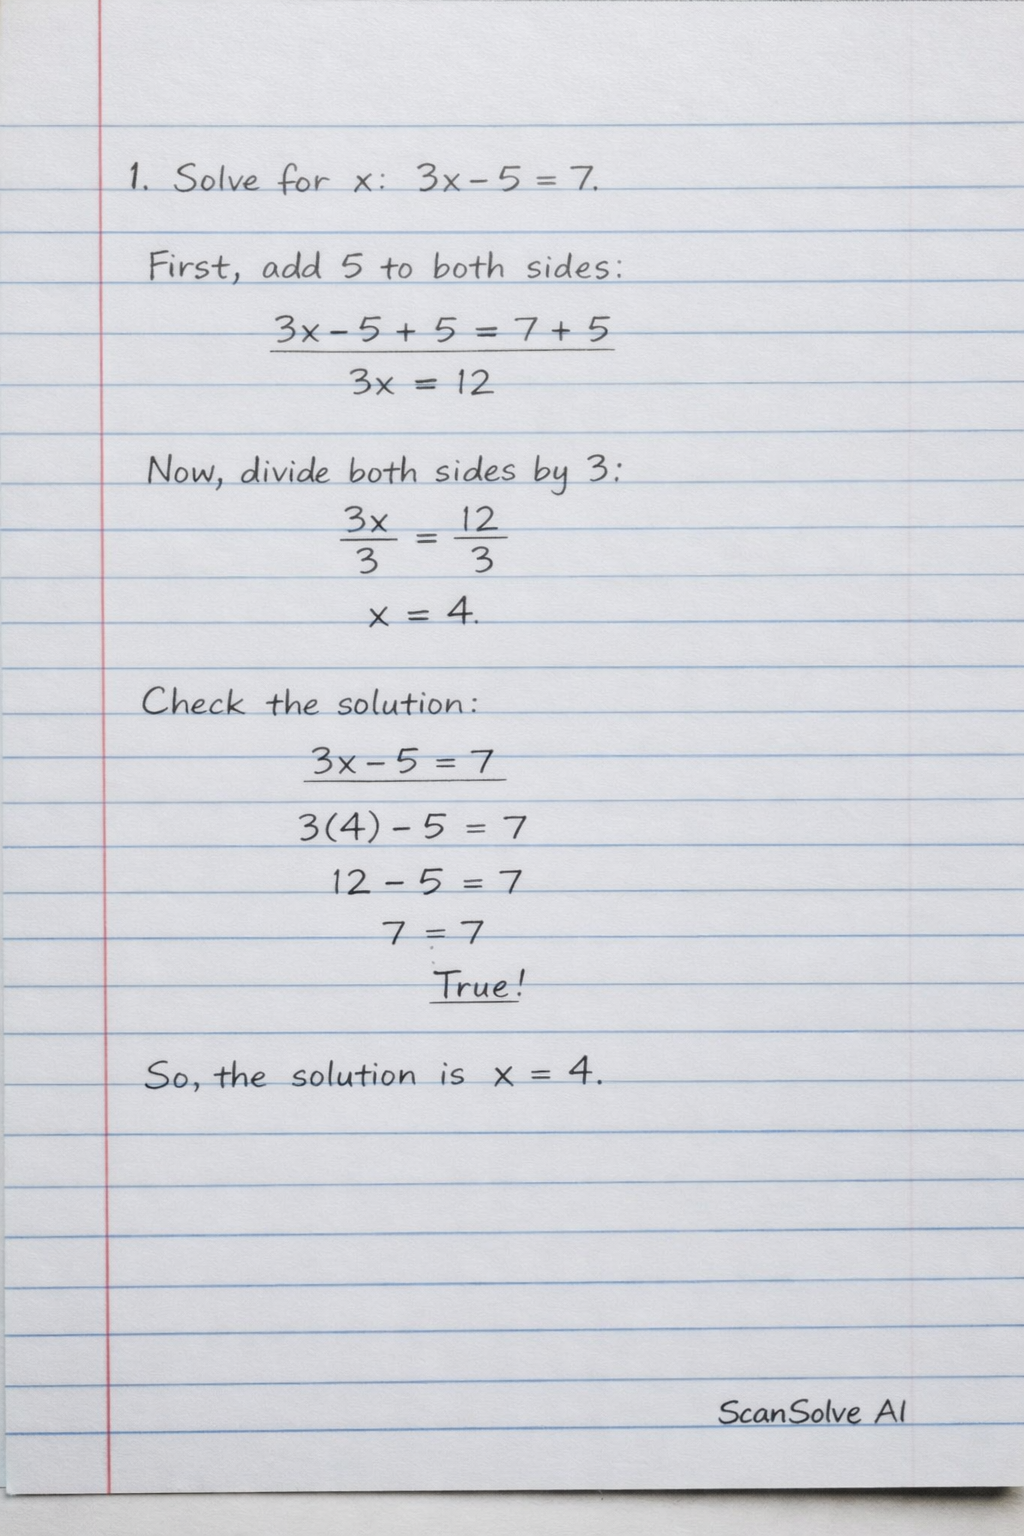 1. Solve for x: 3x - 5 = 7.
First, add 5 to both sides:
3x - 5 + 5 = 7 + 5
3x = 12
Now, divide both sides by 3:
3x/3 = 12/3
x = 4.
Check the solution:
3x - 5 = 7
3(4) - 5 = 7
12 - 5 = 7
7 = 7
True!
So, the solution is x = 4.
ScanSolve AI